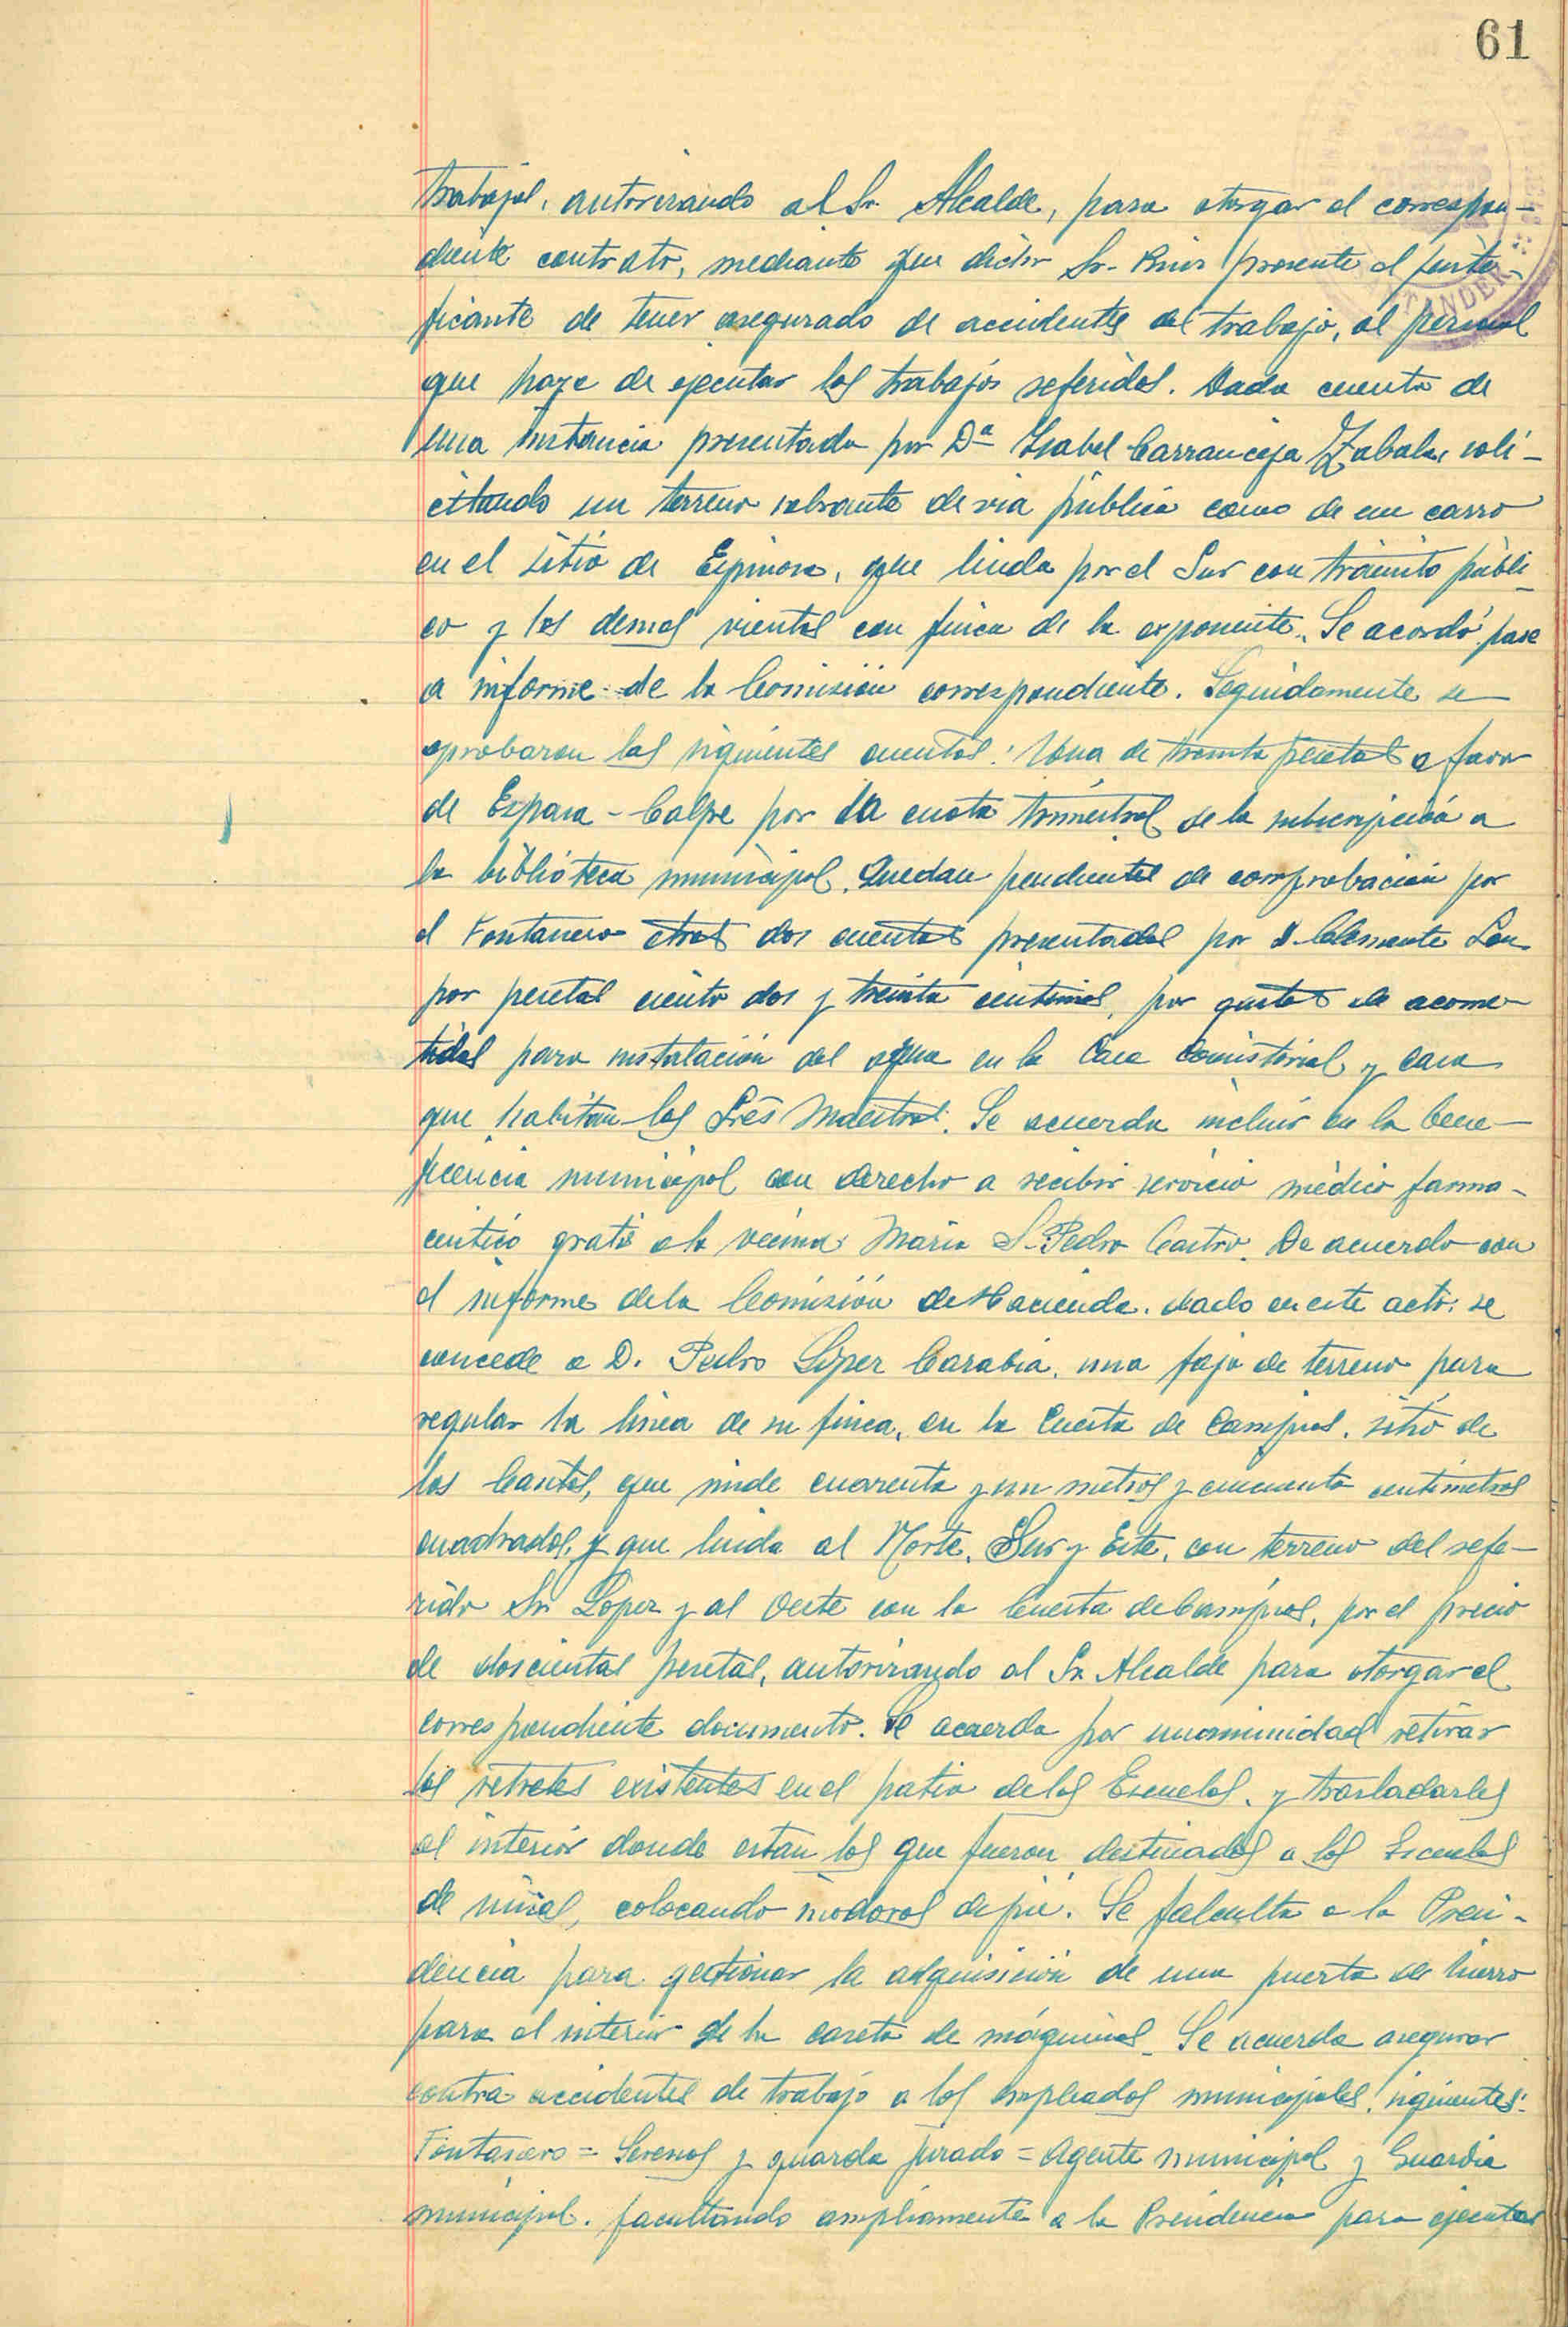 61
trabajos, autorizando al Sr. Alcalde, para otorgar el correspon-
diente contrato, mediante que dicho Sr. Ruiz presente el justi-
ficante de tener asegurado de accidentes del trabajo, al personal
que haya de ejecutar los trabajos referidos. Dada cuenta de
una instancia presentada por Dª Isabel Carranceja Zabala, soli-
citando un terreno sobrante de via pública como de un carro
en el sitio de Espinosa, que linda por el Sur con tránsito públi-
co y los demas vientos con finca de la exponente. Se acordó pase
a informe de la Comisión correspondiente. Seguidamente se
aprobaron las siguientes cuentas: Una de treinta pesetas a favor
de Espasa-Calpe por la cuota trimestral de la subscripción a
la biblioteca municipal. Quedan pendientes de comprobación por
el Fontanero otras dos cuentas presentadas por D. Clemente
por pesetas ciento dos y treinta céntimos, por gastos de acome-
tidas para instalación del agua en la Casa Consistorial y casa
que habitan los Sres Maestros. Se acuerda incluir en la bene-
ficencia municipal con derecho a recibir servicio médico farma-
ceutico gratis a la vecina María S. Pedro Castro. De acuerdo con
el informe de la Comisión de Hacienda, dado en este acto, se
concede a D. Pedro López Carabia, una faja de terreno para
regular la línea de su finca, en la Cuesta de Campios, sitio de
los Cantos, que mide cuarenta y un metros y cincuenta centímetros
cuadrados, y que linda al Norte, Sur y Este, con terreno del refe-
rido Sr Lopez y al Oeste con la Cuesta de Campios, por el precio
de doscientas pesetas, autorizando al Sr. Alcalde para otorgar el
correspondiente documento. Se acuerda por unanimidad retirar
los retretes existentes en el patio de las Escuelas, y trasladarles
al interior donde estan los que fueron destinados a las Escuelas
de niñas, colocando inodoros de pié. Se falculta a la Presi-
dencia para gestionar la adquisición de una puerta de hierro
para el interior de la caseta de máquinas. Se acuerda asegurar
contra accidentes de trabajo a los empleados municipales, siguientes:
Fontanero = Serenos y guarda jurado = Agente municipal y Guardia
municipal, facultando ampliamente a la Presidencia para ejecutar